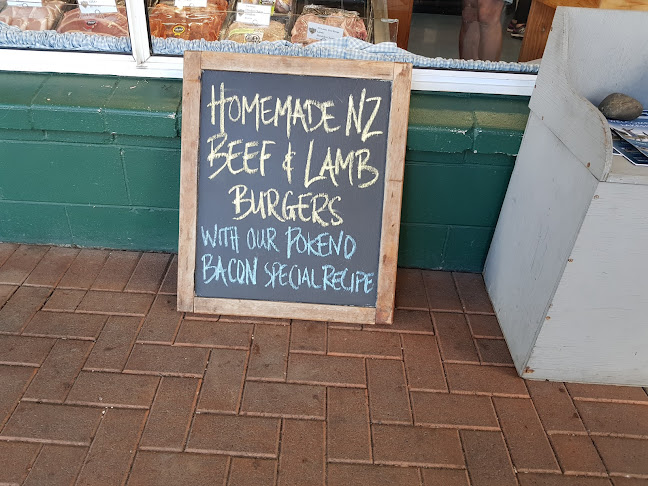 HOMEMADE NZ
BEEF & LAMB
BURGERS
WITH OUR POKENO
BACON SPECIAL RECIPE